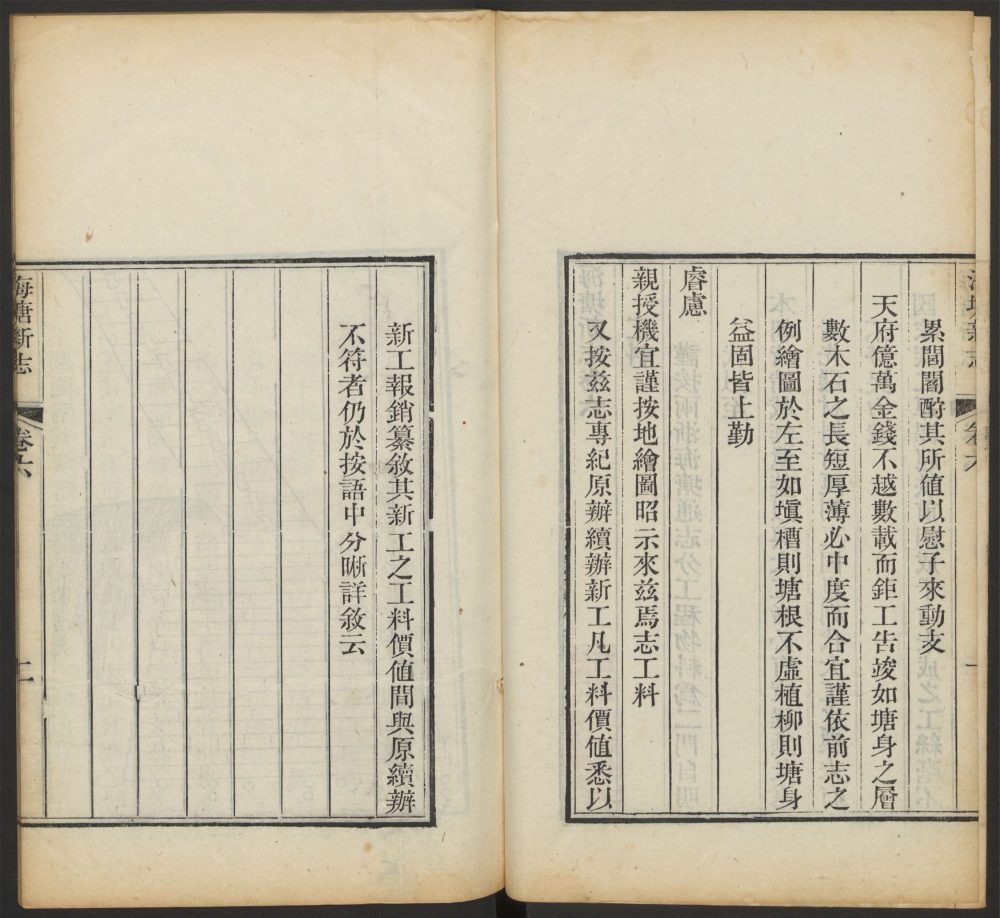 海塘新志
卷六
一
累閭閻酌其所值以慰子來動支
天府億萬金錢不越數載而鉅工告竣如塘身之層
數木石之長短厚薄必中度而合宜謹依前志之
例繪圖於左至如塡槽則塘根不虛植柳則塘身
益固皆上勤
睿慮
親授機宜謹按地繪圖昭示來茲焉志工料
又按茲志專紀原辦續辦新工凡工料價値悉以
新工報銷纂敘其新工之工料價値間與原續辦
不符者仍於按語中分晰詳敘云
海塘新志
卷六
二